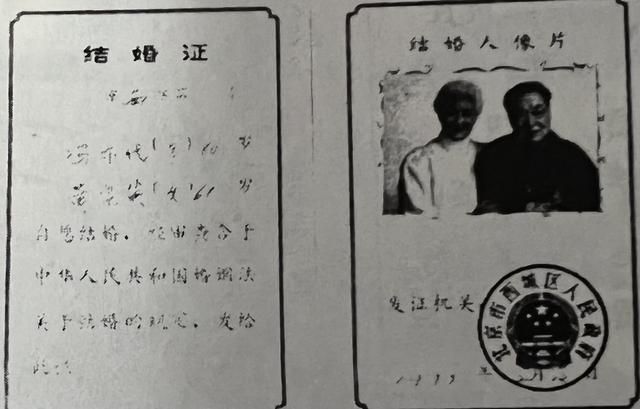 结婚证
冯亦代(男) 岁
(女) 岁
自愿结婚，经审查合于
中华人民共和国婚姻法
关于结婚的规定，发给
此证
结婚人像片
发证机关
北京市西城区人民政府
年